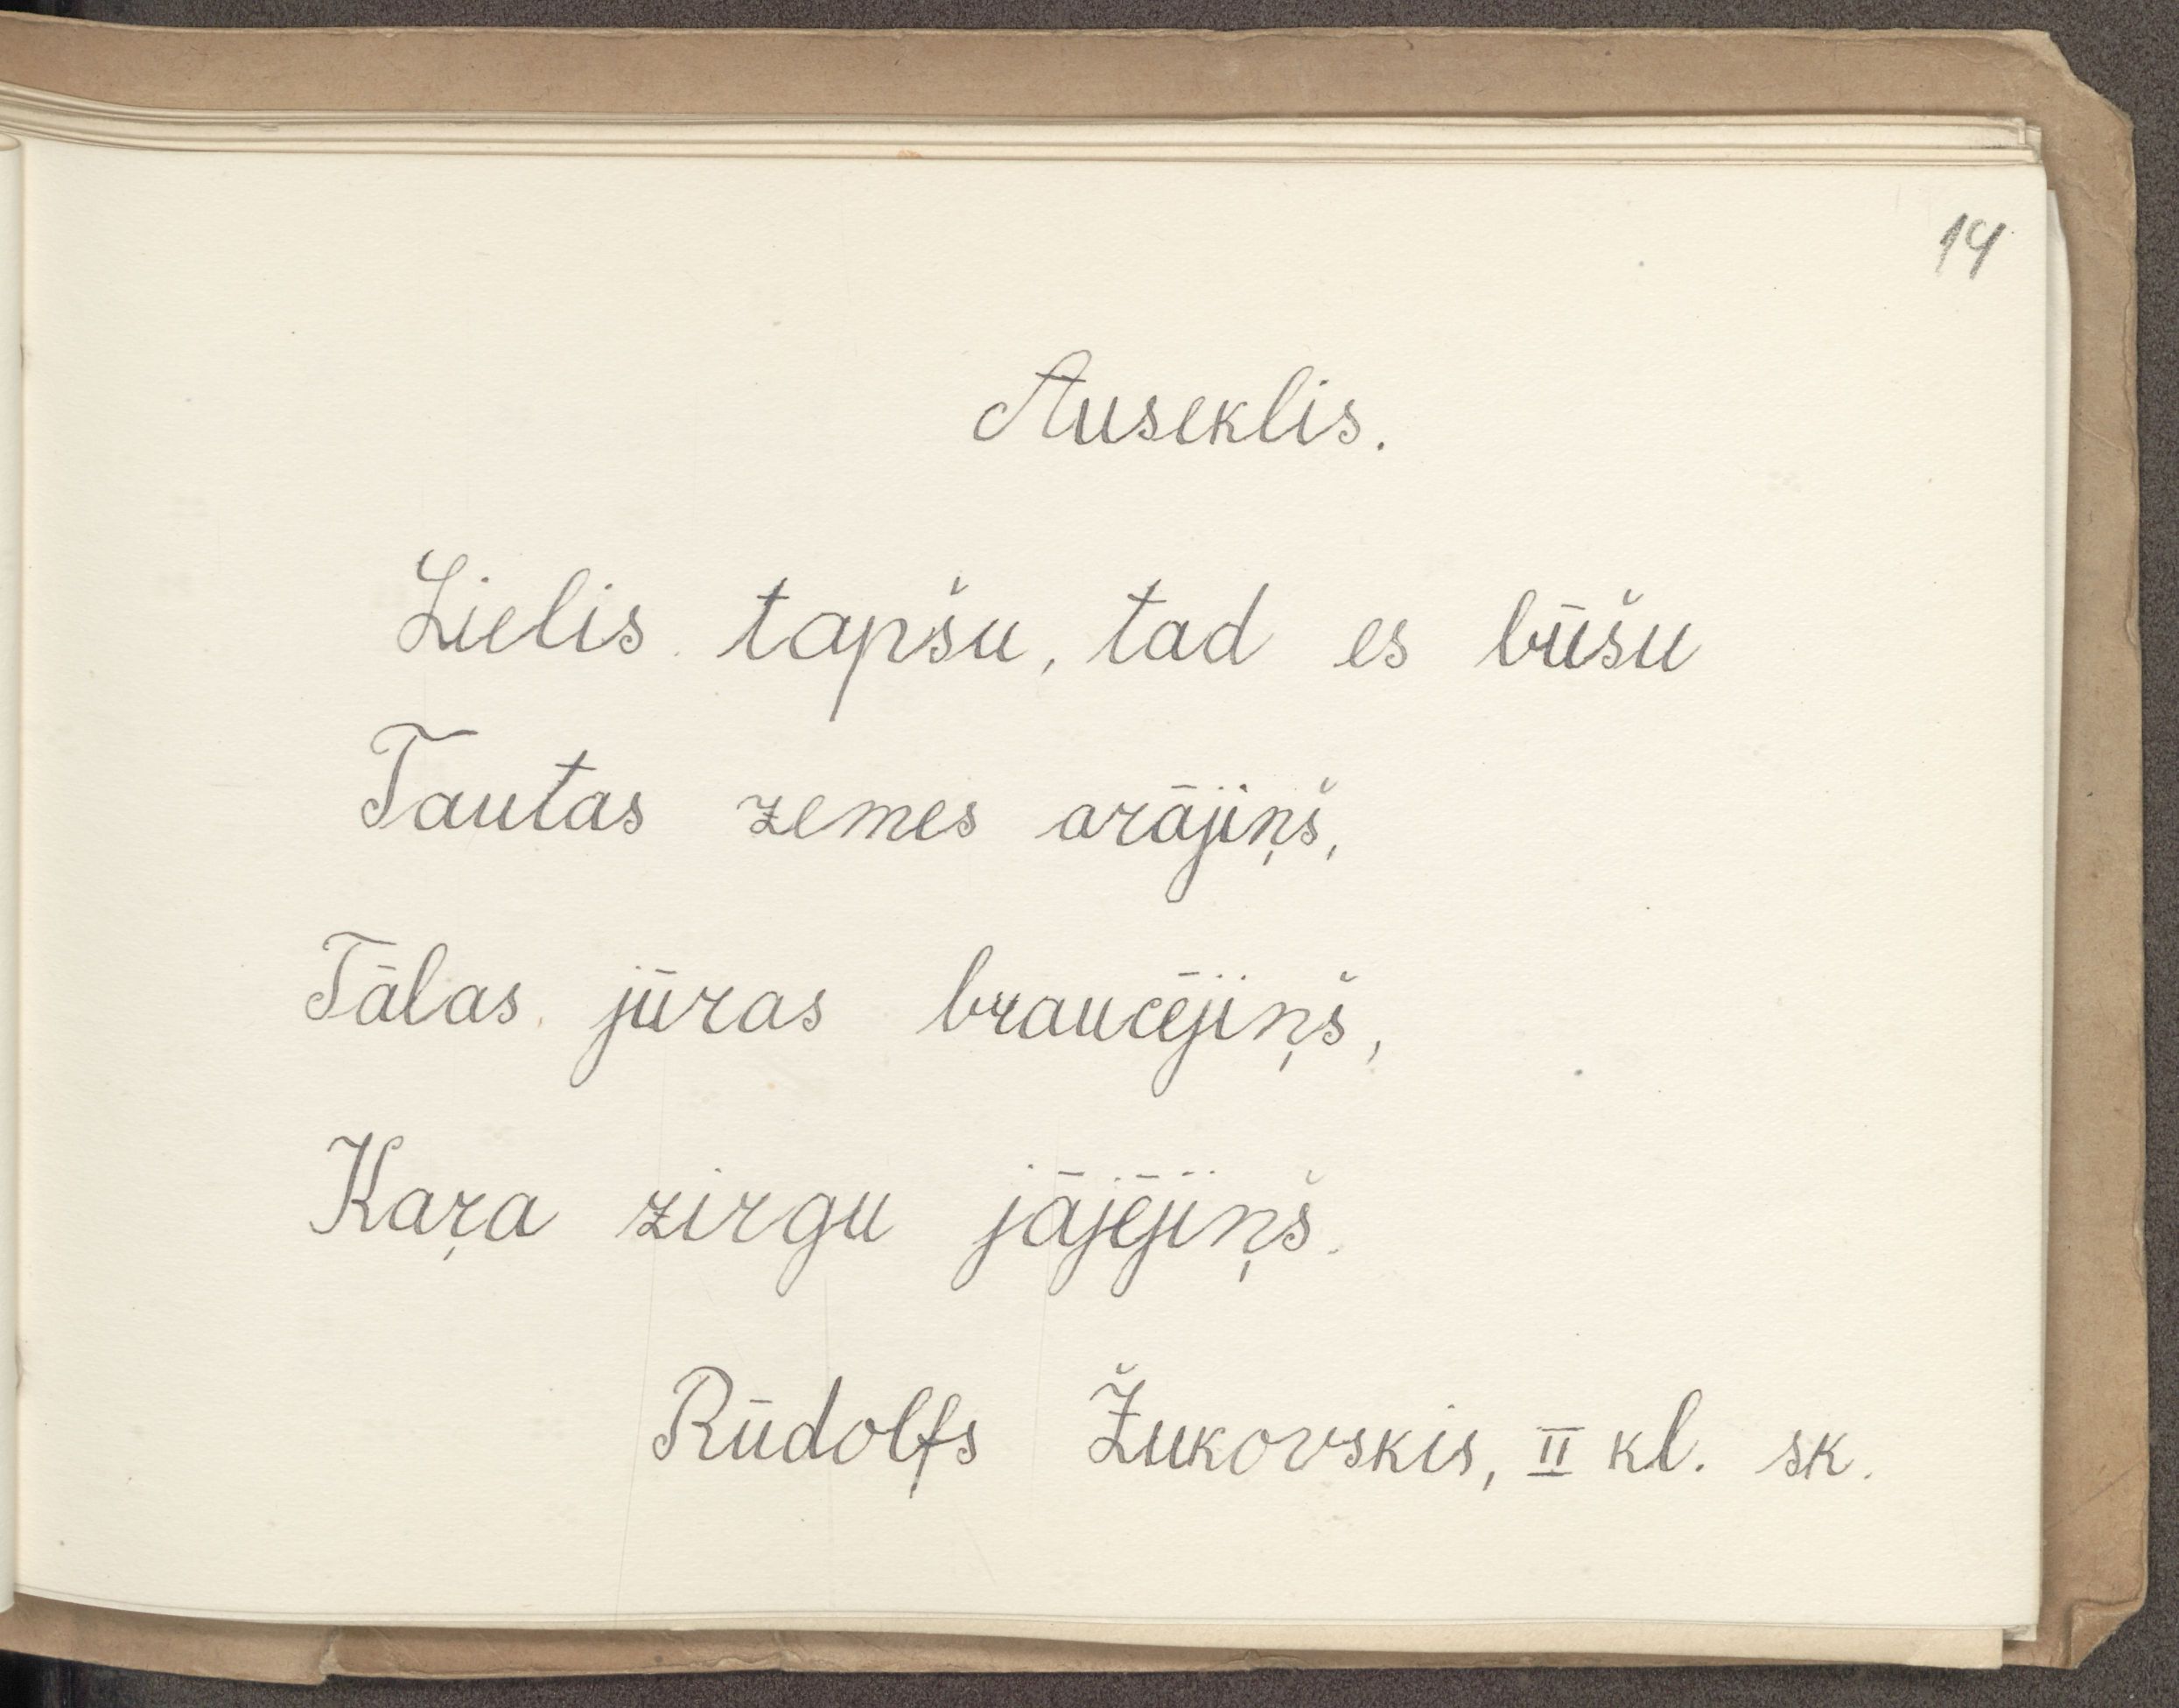 14
Auseklis.
Lielis tapšu, tad es būšu
Tautas zemes arājiņš,
Tālas jūras braucējiņš,
Kaŗa zirgu jājējiņš.
Rūdolfs Žukovskis, II kl. sk.